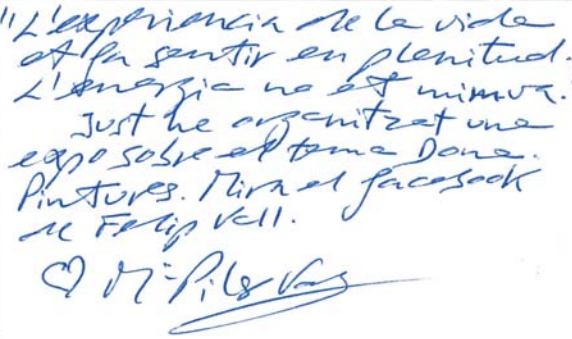 "L'experiencia de la vida
et fa sentir en plenitud.
L'energia no et minva.
Just he organitzat una
expo sobre el tema Dona.
Pintures. Mira el facebook
de Felip Vall.
♡ Mª Pilar